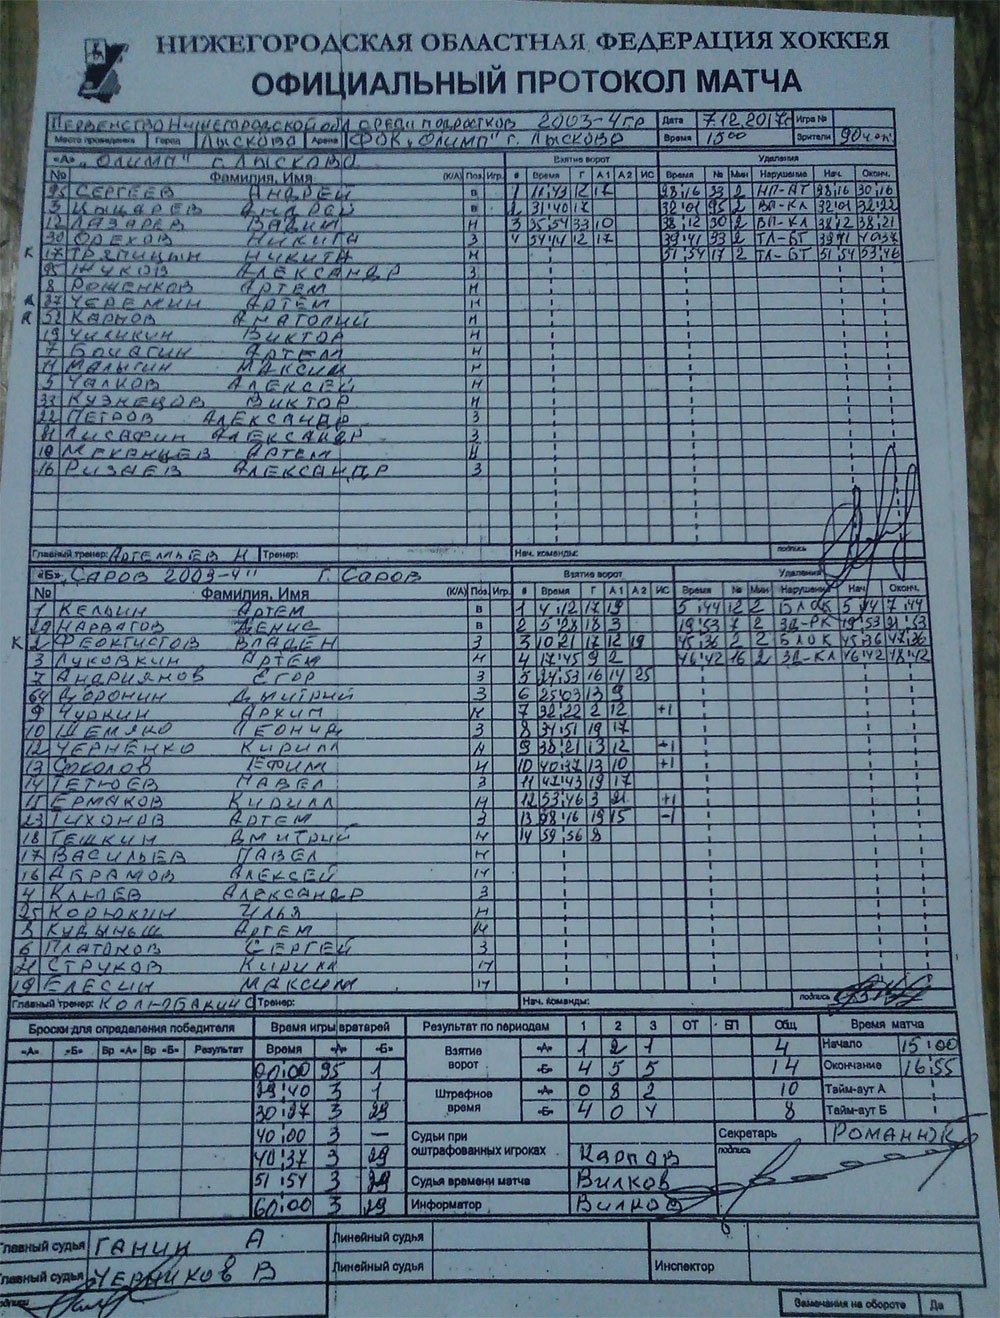 НИЖЕГОРОДСКАЯ ОБЛАСТНАЯ ФЕДЕРАЦИЯ ХОККЕЯ
ОФИЦИАЛЬНЫЙ ПРОТОКОЛ МАТЧА
Первенство Нижегородской обл среди подростков 2003-4гр Дата 7.12.2017г Игра №
Место проведения Город Лысково Арена ФОК "Олимп" г. Лысково Время 15 00 Зрители 90 чел.
«А» "ОЛИМП" г. Лысково Взятие ворот Удаления
№ Фамилия, Имя (К/А) Поз. Игр. # Время Г А1 А2 ИС Время № Мин Нарушение Нач. Оконч.
95 Сергеев Андрей в 1 11:43 12 17 33 2 НП-АТ 30:16
3 Андрей в 2 31:40 17 32:01 95 2 32:01 32:22
12 Лазарев Вадим н 3 35:54 33 10 38:12 30 2 38:12 38:21
30 Орехов Никита з 4 54:14 12 17 39:41 33 2 39:41 40:37
К 17 Тряпицын Никита н 51:54 17 2 51:54 53:46
95 Жуков Александр з
8 Роженков Артем н
А 27 Черемин Артем н
А 52 Карпов Анатолий н
19 Чиликин Виктор н
7 Бочагин Артем н
11 Малыгин Максим н
5 Чалков Алексей н
33 Кузнецов Виктор н
22 Петров Александр з
81 Лисафин Александр з
10 Артем н
16 Ризаев Александр з
Главный тренер: Артемьев Н Тренер: Нач. команды: подпись
«Б» "Саров 2003-4" г. Саров Взятие ворот Удаления
№ Фамилия, Имя (К/А) Поз. Игр. # Время Г А1 А2 ИС Время № Мин Нарушение Нач. Оконч.
1 Кельин Артем в 1 4:12 17 19 5:44 12 2 БЛОК 5:44 7:44
29 Нарватов Денис в 2 5:28 18 3 19:53 7 2 19:53 21:53
К 2 Феоктистов Владлен з 3 10:21 17 12 19 45:36 2 2 БЛОК 45:36 47:36
3 Луковкин Артем н 4 17:45 9 2 46:42 16 2 46:42 48:42
7 Андриянов Егор з 5 24:53 16 14 25
64 Доронин Дмитрий з 6 25:03 13 9
9 Чуркин Архип н 7 32:22 2 12 +1
10 Шемяко Леонид з 8 34:51 19 17
12 Черненко Кирилл н 9 38:21 13 12 +1
13 Соколов Ефим н 10 40:37 13 10 +1
14 Тетюев Павел з 11 47:43 19 17
11 Ермаков Кирилл н 12 53:46 3 21 +1
23 Тихонов Артем з 13 19 15 -1
18 Тешкин Дмитрий н 14 59:56 8
17 Васильев Павел н
16 Абрамов Алексей н
4 Клюев Александр з
25 Корюкин Илья н
8 Кудыныш Артем н
6 Платонов Сергей з
21 Струков Кирилл н
19 Елесин Максим н
Главный тренер: Тренер: Нач. команды: подпись
Броски для определения победителя Время игры вратарей Результат по периодам 1 2 3 ОТ БП Общ Время матча
«А» «Б» Вр «А» Вр «Б» Результат Время «А» «Б» Взятие ворот «А» 1 2 1 4 Начало 15:00
00:00 95 1 «Б» 4 5 5 14 Окончание 16:55
29:40 3 1 Штрафное время «А» 0 8 2 10 Тайм-аут А
30:27 3 29 «Б» 4 0 4 8 Тайм-аут Б
40:00 3 — Судьи при оштрафованных игроках Карпов Секретарь Романюк
40:37 3 29 подпись
51:54 3 29 Судья времени матча Вилков
60:00 3 29 Информатор Вилков
Главный судья Ганин А Линейный судья
Главный судья Черников В Линейный судья Инспектор
подписи
Замечания на обороте Да